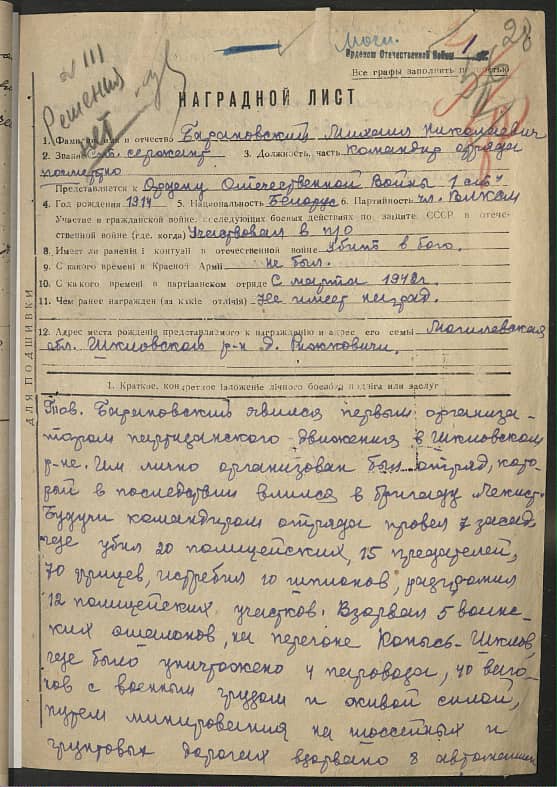 28
№ 111
Решения
нет
Моги.
Орденом Отечественной Войны
Все графы заполнить полностью
НАГРАДНОЙ ЛИСТ
1. Фамилия, имя и отчество Барановский Михаил Николаевич
2. Звание ст. сержант 3. Должность, часть командир отряда
посмертно
Представляется к Ордену Отечественной Войны 1 ст.
4. Год рождения 1914 5. Национальность Белорус 6. Партийность чл. ВЛКСМ
Участие в гражданской войне, последующих боевых действиях по защите СССР в отече-
ственной войне (где, когда) Участвовал в п/о
8. Имеет ли ранения и контузии в отечественной войне Убит в бою.
9. С какого времени в Красной Армии не был.
10. С какого времени в партизанском отряде С марта 1942г.
11. Чем ранее награжден (за какие отличия) Не имеет наград.
12. Адрес места рождения представляемого к награждению и адрес его семьи Могилевская
обл. Шкловский р-н д. Рыжковичи.
ДЛЯ ПОДШИВКИ
1. Краткое, конкретное изложение личного боевого подвига или заслуг
Тов. Барановский явился первым организа-
тором партизанского движения в Шкловском
р-не. Им лично организован был отряд, кото-
рой в последствии влился в бригаду Чекист.
Будучи командиром отряда провел 7 засад,
где убил 20 полицейских, 15 предателей,
70 фрицев, истребил 10 шпионов, разгромил
12 полицейских участков. Взорвал 5 воинс-
ких эшалонов, на перегоне Копысь-Шклов,
где было уничтожено 4 паровоза, 40 ваго-
нов с военным грузом и живой силой,
путем минирования на шоссейных и
грунтовых дорогах взорвано 8 автомашин